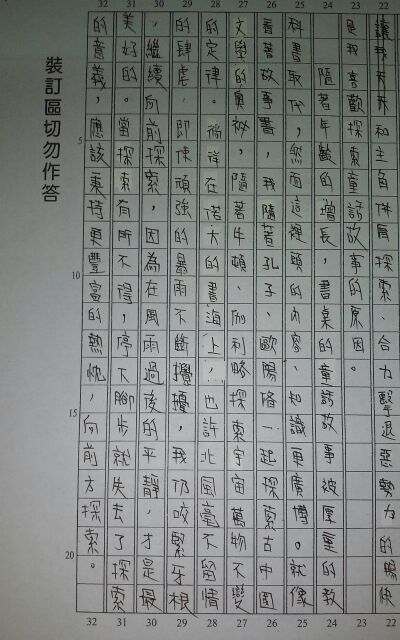 22
讓我天天和主角併肩探索、合力擊退惡勢力的暢快
22
23
是我喜歡探索童話故事的原因。
23
24
隨著年齡的增長，書桌的童話故事被厚重的教
24
25
科書取代，然而這裡頭的內容、知識更廣博。就像
25
26
看著故事書，我隨著孔子、歐陽脩一起探索古中國
26
27
文學的奧祕，隨著牛頓、伽利略探索宇宙萬物不變
27
28
的定律。徜徉在偌大的書海上，也許北風毫不留情
28
29
的肆虐，即使頑強的暴雨不斷攪擾，我仍咬緊牙根
29
30
，繼續向前探索，因為在風雨過後的平靜，才是最
30
31
美好的。當探索有所不得，停下腳步就失去了探索
31
32
的意義，應該秉持更豐富的熱忱，向前方探索。
32
5
10
15
20
裝訂區切勿作答